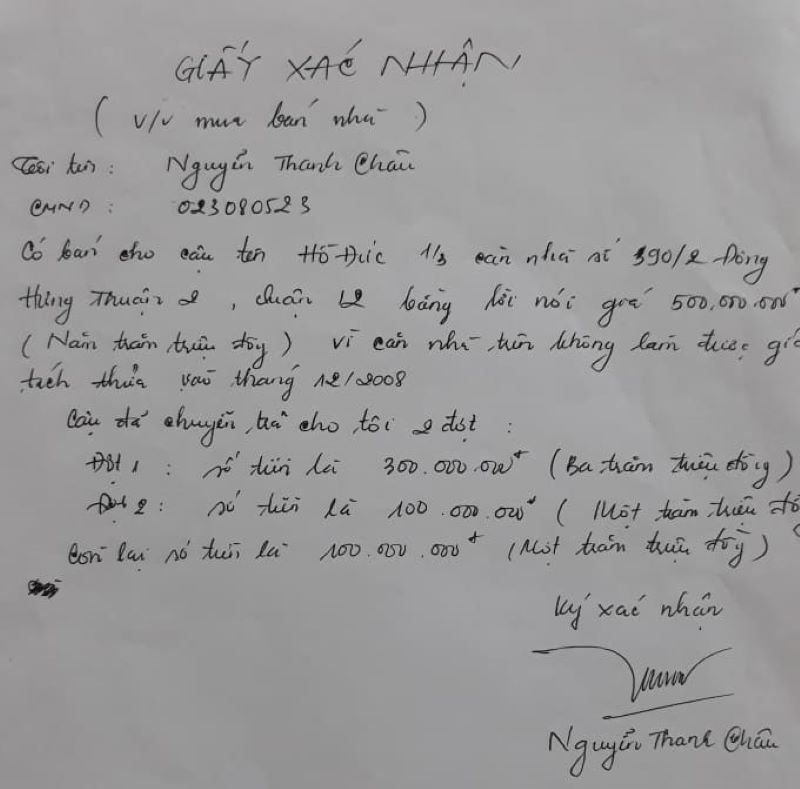 GIẤY XÁC NHẬN
( V/v mua bán nhà )
Tôi tên : Nguyễn Thanh Châu
CMND : 023080523
Có bán cho cậu tên Hồ Đức 1/3 căn nhà số 390/2 Đông
Hưng Thuận 2, Quận 12 bằng lời nói giá 500.000.000đ
( Năm trăm triệu đồng ) vì căn nhà trên không làm được giấ
tách thửa vào tháng 12/2008
Cậu đã chuyển trả cho tôi 2 đợt :
Đợt 1 : số tiền là 300.000.000đ ( Ba trăm triệu đồng )
Đợt 2 : số tiền là 100.000.000đ ( Một trăm triệu đồ
Còn lại số tiền là 100.000.000đ ( Một trăm triệu đồng )
Ký xác nhận
Nguyễn Thanh Châu